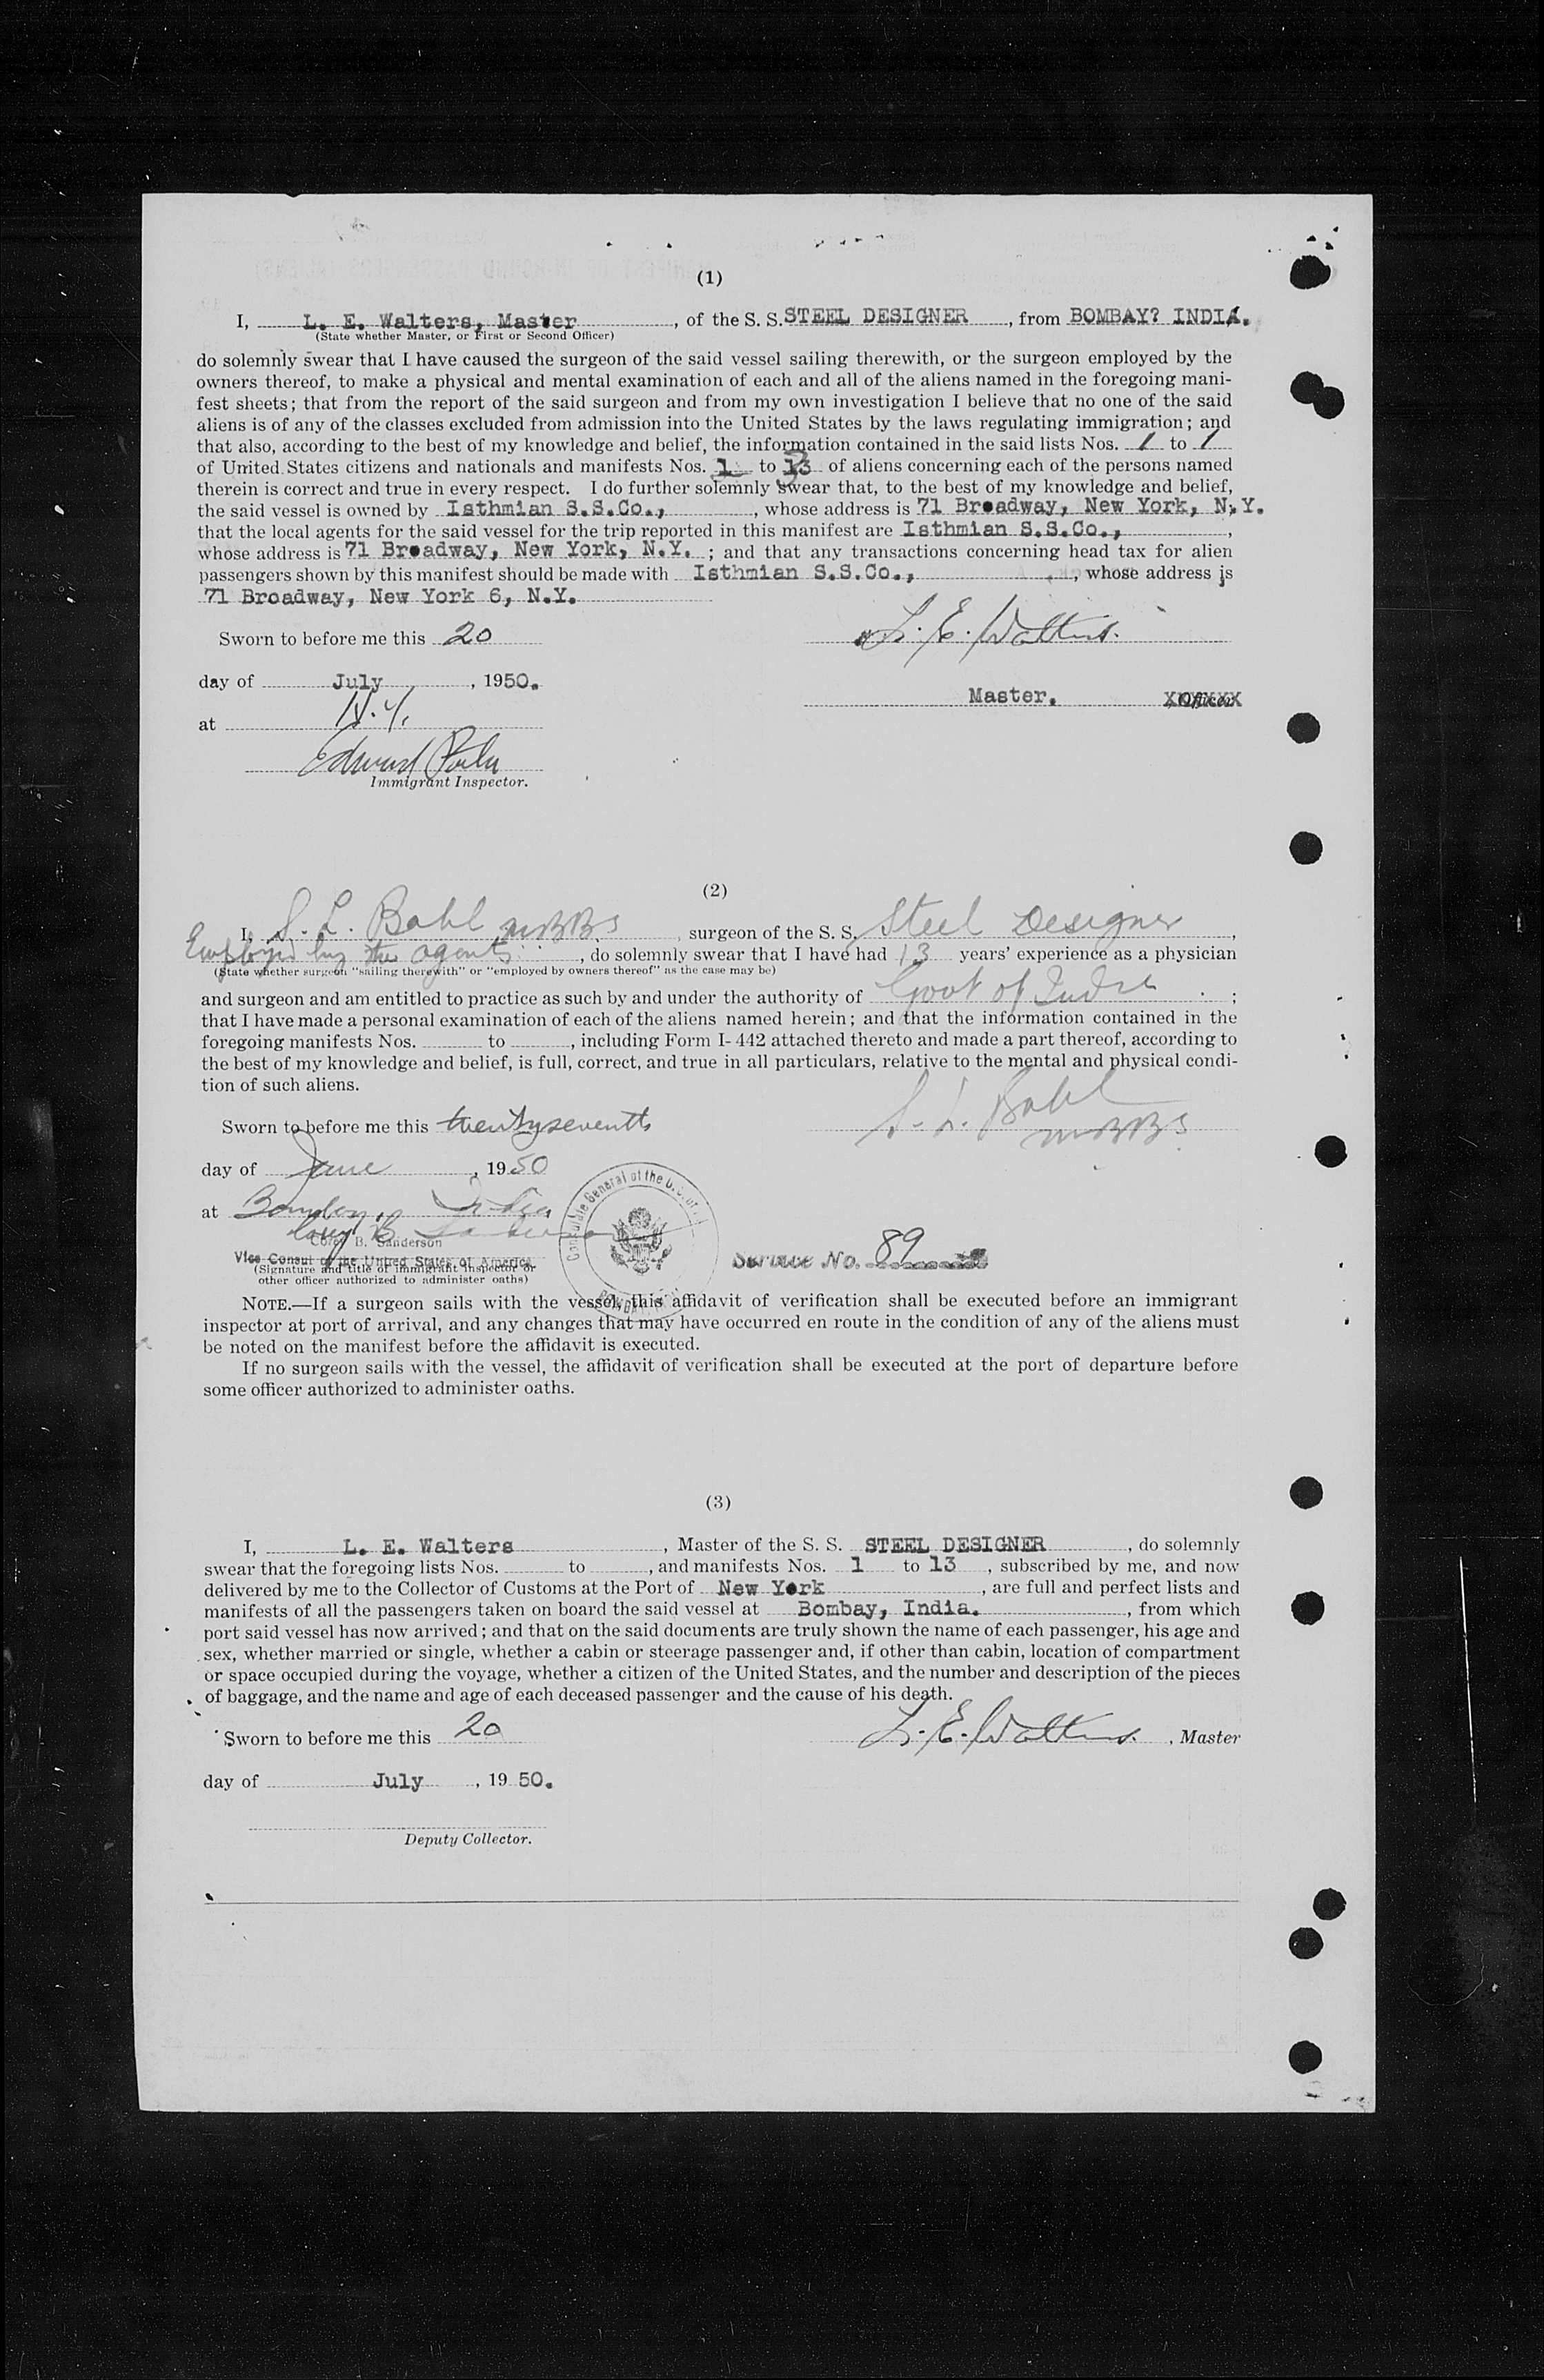 (1)
I, L. E. Walters, Master, of the S. S. STEEL DESIGNER, from BOMBAY? INDIA.
(State whether Master, or First or Second Officer)
do solemnly swear that I have caused the surgeon of the said vessel sailing therewith, or the surgeon employed by the
owners thereof, to make a physical and mental examination of each and all of the aliens named in the foregoing mani-
fest sheets; that from the report of the said surgeon and from my own investigation I believe that no one of the said
aliens is of any of the classes excluded from admission into the United States by the laws regulating immigration; and
that also, according to the best of my knowledge and belief, the information contained in the said lists Nos. 1 to 1
of United States citizens and nationals and manifests Nos. 1 to 13 of aliens concerning each of the persons named
therein is correct and true in every respect. I do further solemnly swear that, to the best of my knowledge and belief,
the said vessel is owned by Isthmian S.S.Co., , whose address is 71 Broadway, New York, N.Y.
that the local agents for the said vessel for the trip reported in this manifest are Isthmian S.S.Co., ,
whose address is 71 Broadway, New York, N.Y. ; and that any transactions concerning head tax for alien
passengers shown by this manifest should be made with Isthmian S.S.Co., , whose address is
71 Broadway, New York 6, N.Y.
Sworn to before me this 20 L. E. Walters.
day of July , 1950. Master. XXXXXX
at N.Y.
Edward
Immigrant Inspector.
(2)
I, S. L. Bahl MBBS , surgeon of the S. S. Steel Designer ,
Employed by the agents , do solemnly swear that I have had 13 years' experience as a physician
(State whether surgeon "sailing therewith" or "employed by owners thereof" as the case may be)
and surgeon and am entitled to practice as such by and under the authority of Govt of India ;
that I have made a personal examination of each of the aliens named herein; and that the information contained in the
foregoing manifests Nos. to , including Form I-442 attached thereto and made a part thereof, according to
the best of my knowledge and belief, is full, correct, and true in all particulars, relative to the mental and physical condi-
tion of such aliens.
Sworn to before me this twentyseventh S. L. Bahl
MBBS
day of June , 1950
at Bombay, India
Corey B. Sanderson
Corey B. Sanderson
Vice Consul of the United States of America
(Signature and title of immigrant inspector or
other officer authorized to administer oaths)
Consulate General of the U.S. of
BOMBAY
Service No. 89
NOTE.—If a surgeon sails with the vessel, this affidavit of verification shall be executed before an immigrant
inspector at port of arrival, and any changes that may have occurred en route in the condition of any of the aliens must
be noted on the manifest before the affidavit is executed.
If no surgeon sails with the vessel, the affidavit of verification shall be executed at the port of departure before
some officer authorized to administer oaths.
(3)
I, L. E. Walters , Master of the S. S. STEEL DESIGNER , do solemnly
swear that the foregoing lists Nos. to , and manifests Nos. 1 to 13 , subscribed by me, and now
delivered by me to the Collector of Customs at the Port of New York , are full and perfect lists and
manifests of all the passengers taken on board the said vessel at Bombay, India. , from which
port said vessel has now arrived; and that on the said documents are truly shown the name of each passenger, his age and
sex, whether married or single, whether a cabin or steerage passenger and, if other than cabin, location of compartment
or space occupied during the voyage, whether a citizen of the United States, and the number and description of the pieces
of baggage, and the name and age of each deceased passenger and the cause of his death.
Sworn to before me this 20 L. E. Walters. , Master
day of July , 19 50.
Deputy Collector.